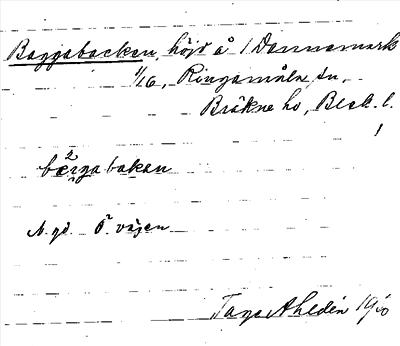 Baggabacken, höjd å 1 Dannemark
1/16, Ringamåla sn,
Bräkne hd, Blek. l.
1
bagga bakan
N. gd. Ö. vägen
Tage Ahldén 19